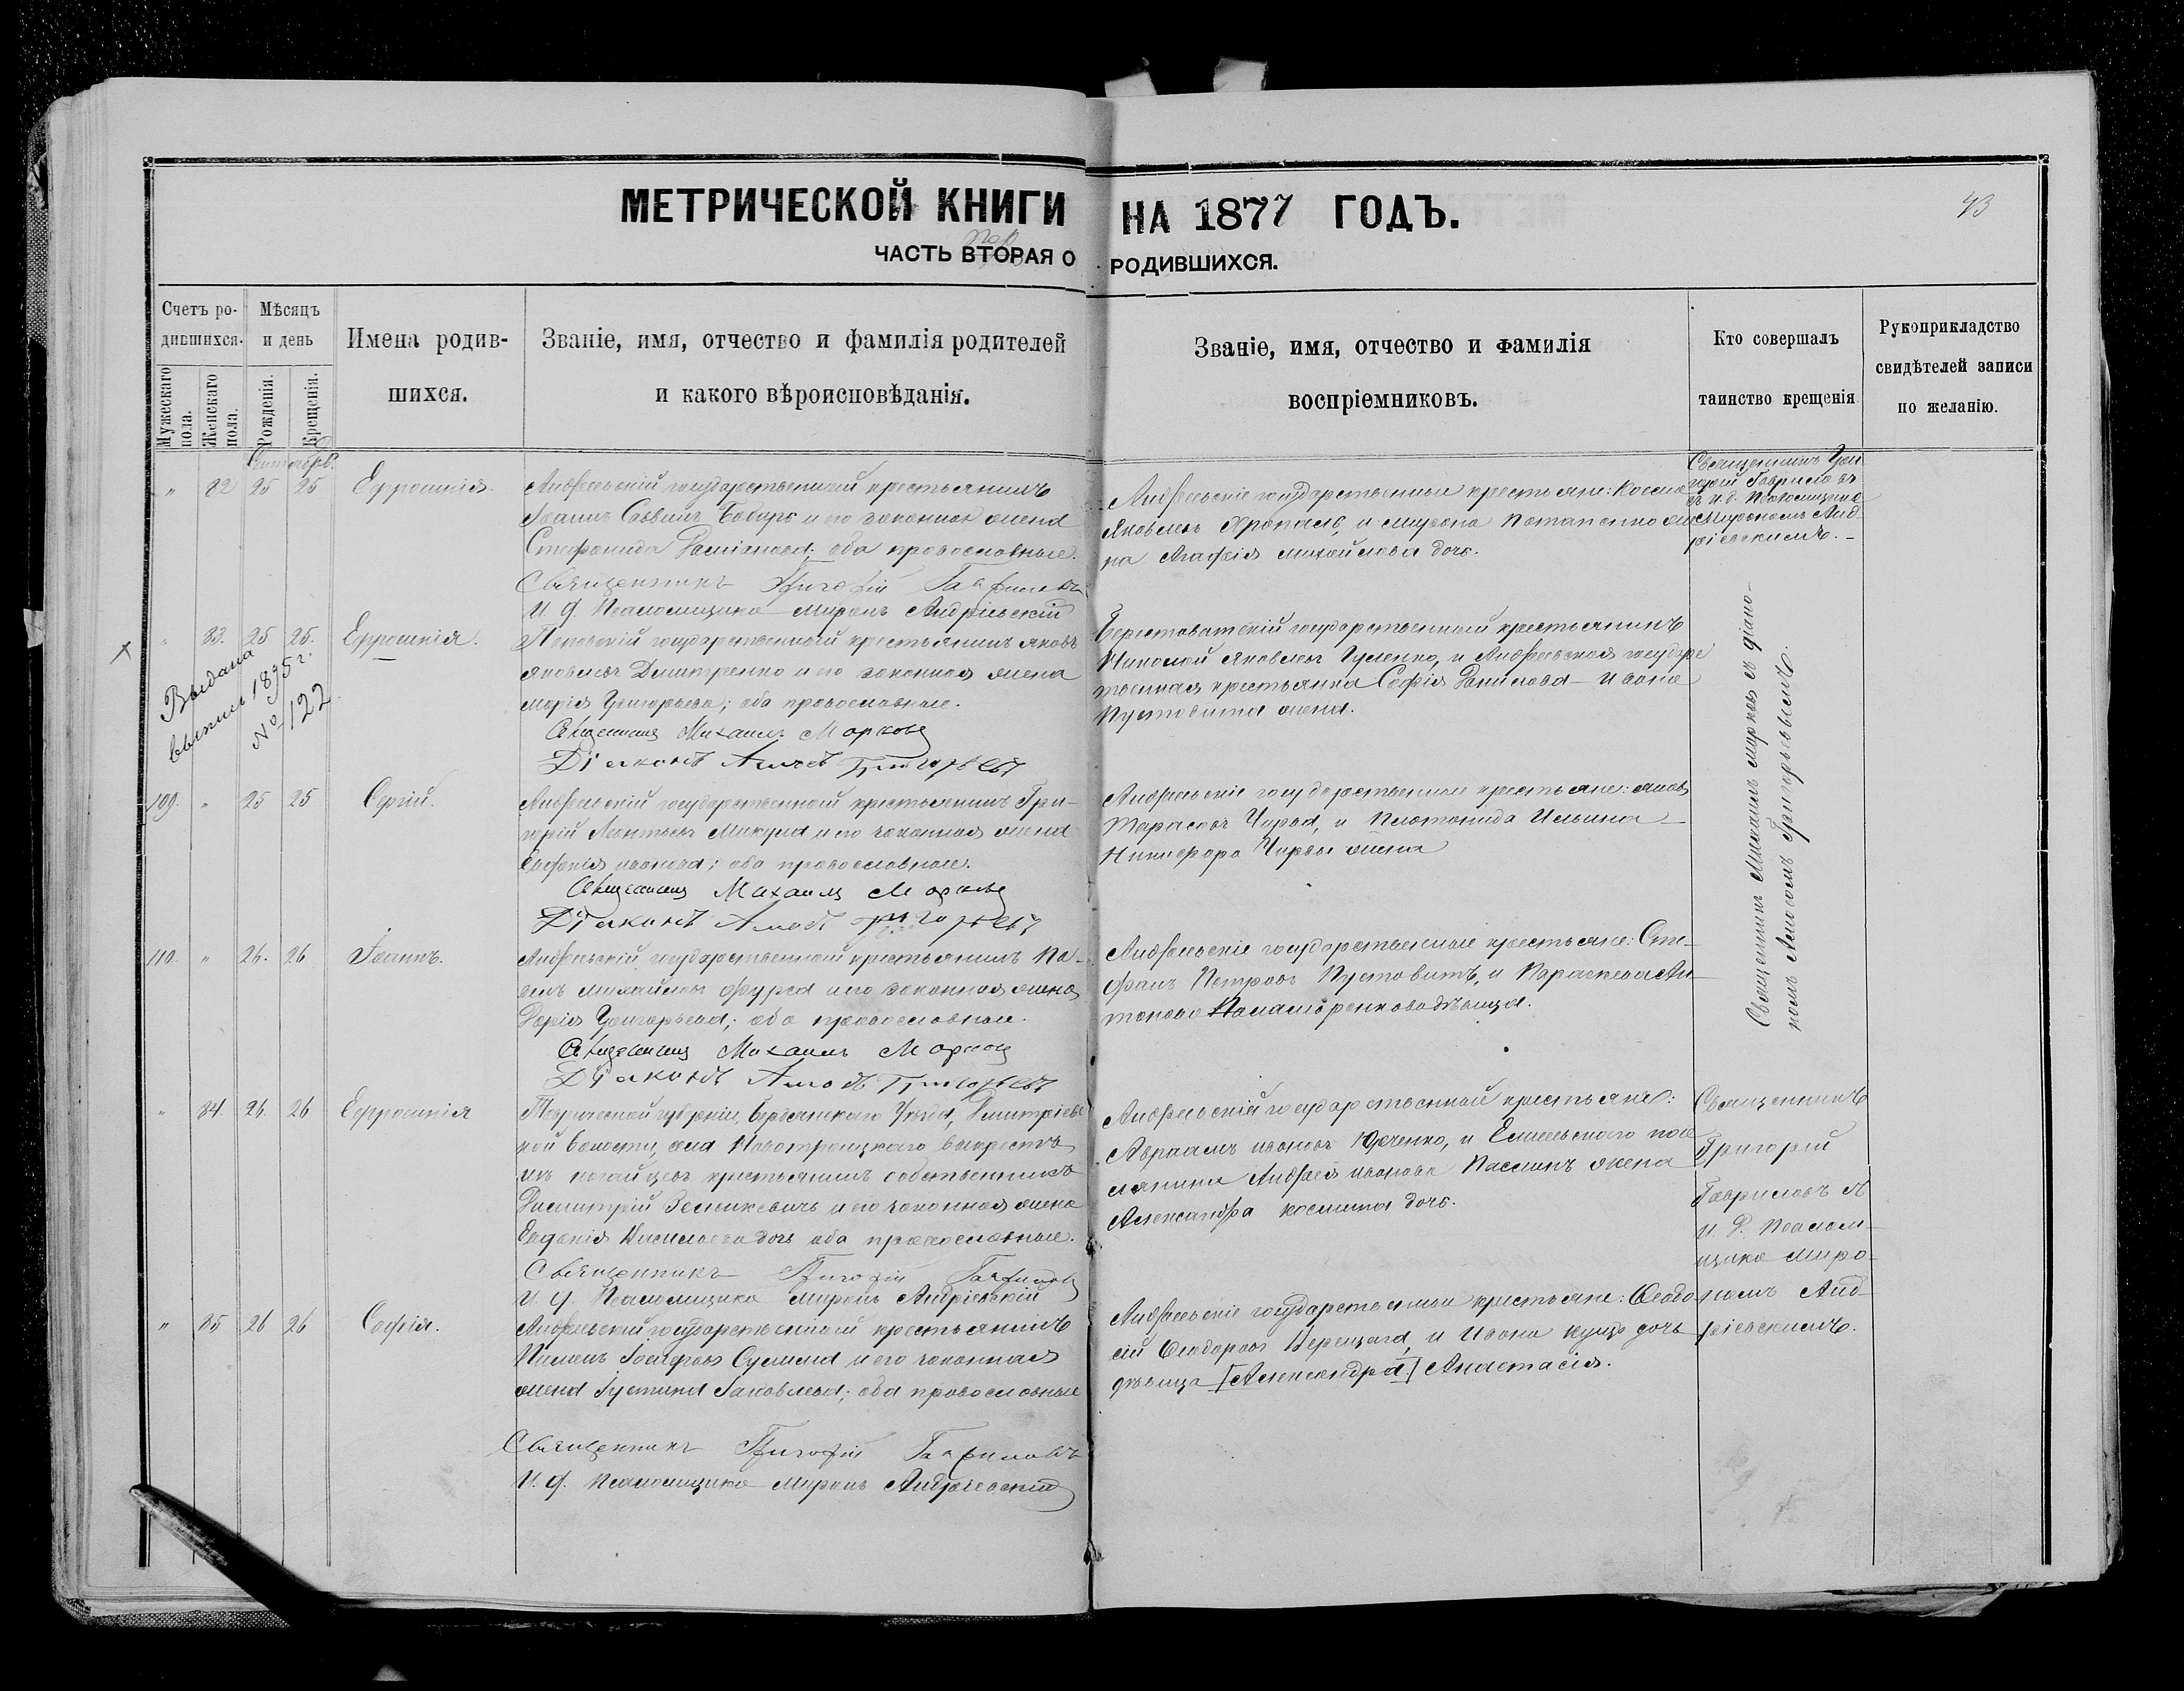 МЕТРИЧЕСКОЙ КНИГИ НА 1877 ГОДЪ.
43
ЧАСТЬ ВТОРАЯ О РОДИВШИХСЯ.
Счетъ ро-
дившихся.
Мѣсяцъ
и день
Мужескаго пола.
Женскаго пола.
Рожденія.
Крещенія.
Имена родив-
шихся.
Званіе, имя, отчество и фамилія родителей
и какого вѣроисповѣданія.
Званіе, имя, отчество и фамилія
воспріемниковъ.
Кто совершалъ
таинство крещенія
Рукоприкладство
свидѣтелей записи
по желанію.
Сентябрь.
" 82 25 25 Ефросинія.
Андреевскій государственный крестьянинъ
Іоаннъ Саввинъ и его законная жена
Стефанида оба православные.
Священникъ Григорій Гавриловъ
И. д. Псаломщика Миронъ Андріевскій
Андреевскіе государственные крестьяне: Косма
Яковлевъ и Мирона Потапенко
на Агафія Михайлова дочь.
Священникъ Гри
горій Гавриловъ
съ и. д. Псаломщика
Мирономъ Анд-
ріевскимъ. -
" 83. 25 25. Ефросинія.
Выдана
выпись 1895 г.
№ 122
Поповскій государственный крестьянинъ Яковъ
Яковлевъ Дмитренко и его законная жена
Марія Григорьева; оба православные.
Священникъ Михаилъ Марковъ
Діаконъ Григорьевъ
Берестоватскій государственный крестьянинъ
Николай Яковлевъ Гуленко, и Андреевская государс
твенная крестьянка Софія Данилова Ивана
Пустовита жена.
Священникъ Михаилъ Марковъ съ діако-
номъ Григорьевымъ.
109. " 25 25 Сергій.
Андреевскій государственный крестьянинъ Гри-
горій Леонтьевъ Микула и его законная жена
Иванова; оба православные.
Священникъ Михаилъ Марковъ
Діаконъ Григорьевъ
Андреевскіе государственные крестьяне: Яковъ
Тарасовъ Чирва, и Платонида Ильина
Никифора Чирвы жена
110. " 26. 26 Іоаннъ.
Андреевскій государственный крестьянинъ Па-
велъ Михайловъ Фурса и его законная жена
Дарія Григорьева; оба православные.
Священникъ Михаилъ Марковъ
Діаконъ Григорьевъ
Андреевскіе государственные крестьяне: Сте-
фанъ Петровъ Пустовитъ, и Параскева Ан-
тонова дѣвица.
" 84. 26. 26 Ефросинія
Таврической губерніи, Бердянскаго Уѣзда, Дмитріевс
кой волости, села Новотроицкаго выкрестъ
изъ ногайцевъ крестьянинъ собственникъ
Димитрій и его законная жена
Евдокія дочь оба православные.
Священникъ Григорій Гавриловъ
И. д. Псаломщика Миронъ Андріевскій
Андреевскій государственный крестьяне:
Авраамъ Ивановъ Юрченко, и посе
лянина Андрея Иванова жена
Александра Космина дочь.
Священникъ
Григорій
Гавриловъ съ
и. д. Псалом-
щика Миро-
номъ Анд-
ріевскимъ.
" 85 26 26 Софія.
Андреевскій государственный крестьянинъ
Пименъ Іосифовъ Сулима и его законная
жена Іустина Іаковлева; оба православные
Священникъ Григорій Гавриловъ
И. д. Псаломщика Миронъ Андріевскій
Андреевскіе государственные крестьяне: Ѳеодо-
сій Ѳеодоровъ Верещага, и Ивана Куща дочь
дѣвица [Александра] Анастасія.